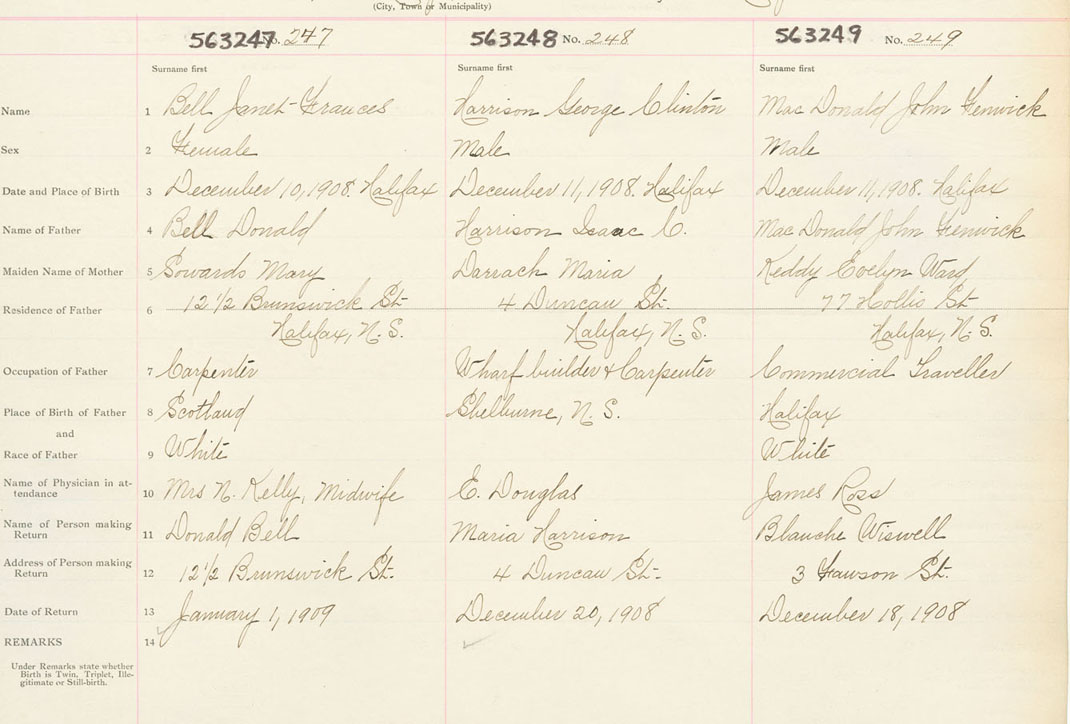 (City, Town or Municipality)
563247 No. 247 563248 No. 248 563249 No. 249
Surname first Surname first Surname first
Name 1 Bell Janet Frances Harrison George Clinton Mac Donald John Fenwick
Sex 2 Female Male Male
Date and Place of Birth 3 December 10, 1908. Halifax December 11, 1908. Halifax December 11, 1908. Halifax
Name of Father 4 Bell Donald Harrison Isaac C. Mac Donald John Fenwick
Maiden Name of Mother 5 Sowards Mary Darrach Maria Keddy Evelyn Ward
Residence of Father 6 12 1/2 Brunswick St. 4 Duncan St. 77 Hollis St
Halifax, N. S. Halifax, N. S. Halifax, N. S.
Occupation of Father 7 Carpenter Wharf builder & Carpenter Commercial Traveller
Place of Birth of Father 8 Scotland Shelburne, N. S. Halifax
and
Race of Father 9 White White
Name of Physician in at-
tendance 10 Mrs N. Kelly, Midwife E. Douglas James Ross
Name of Person making
Return 11 Donald Bell Maria Harrison Blanche Wiswell
Address of Person making
Return 12 12 1/2 Brunswick St. 4 Duncan St. 3 Fawson St.
Date of Return 13 January 1, 1909 December 20, 1908 December 18, 1908
REMARKS 14
Under Remarks state whether
Birth is Twin, Triplet, Ille-
gitimate or Still-birth.